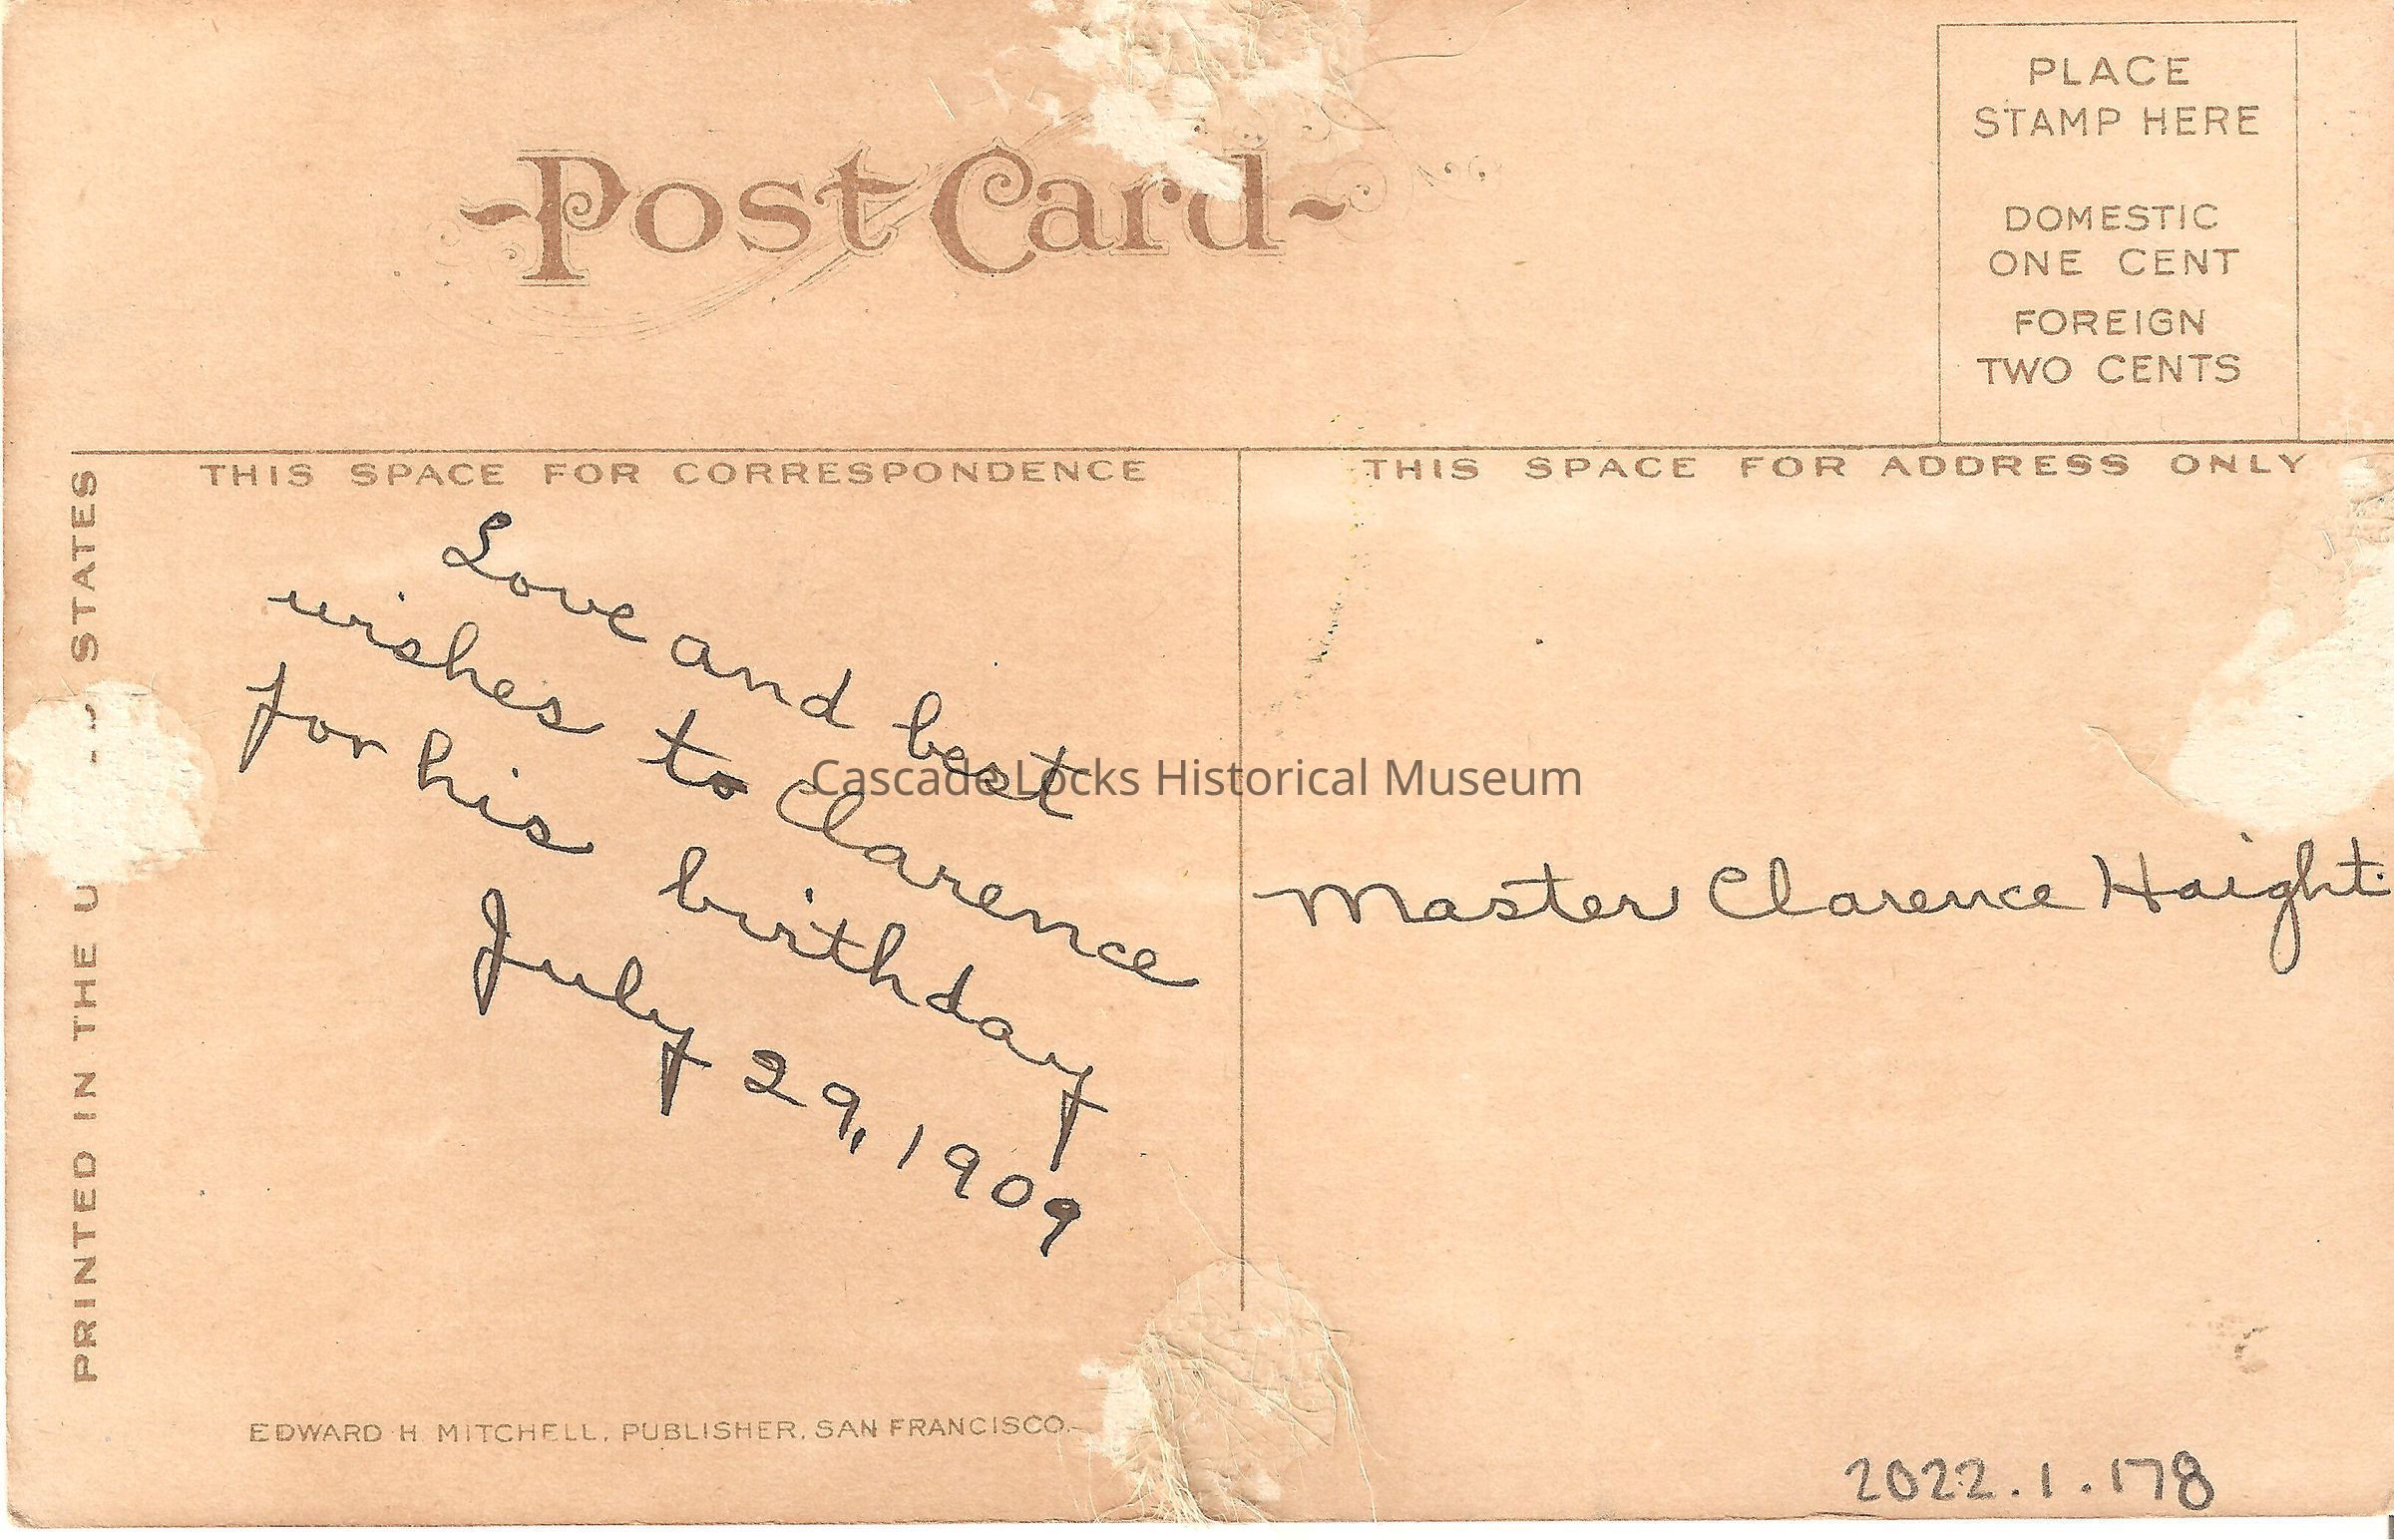 Post Card
PLACE
STAMP HERE
DOMESTIC
ONE CENT
FOREIGN
TWO CENTS
THIS SPACE FOR CORRESPONDENCE
THIS SPACE FOR ADDRESS ONLY
PRINTED IN THE U STATES
Love and best
wishes to Clarence
for his birthday
July 29, 1909
Cascade Locks Historical Museum
Master Clarence Haight.
EDWARD H MITCHELL, PUBLISHER, SAN FRANCISCO.
2022.1.178